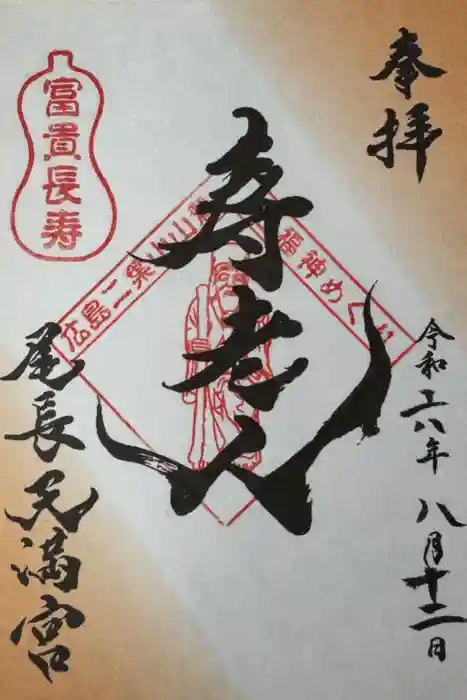 奉拝
令和六年八月十二日
寿老人
富貴長寿
広島二葉山山麓
福神めぐり
尾長天満宮